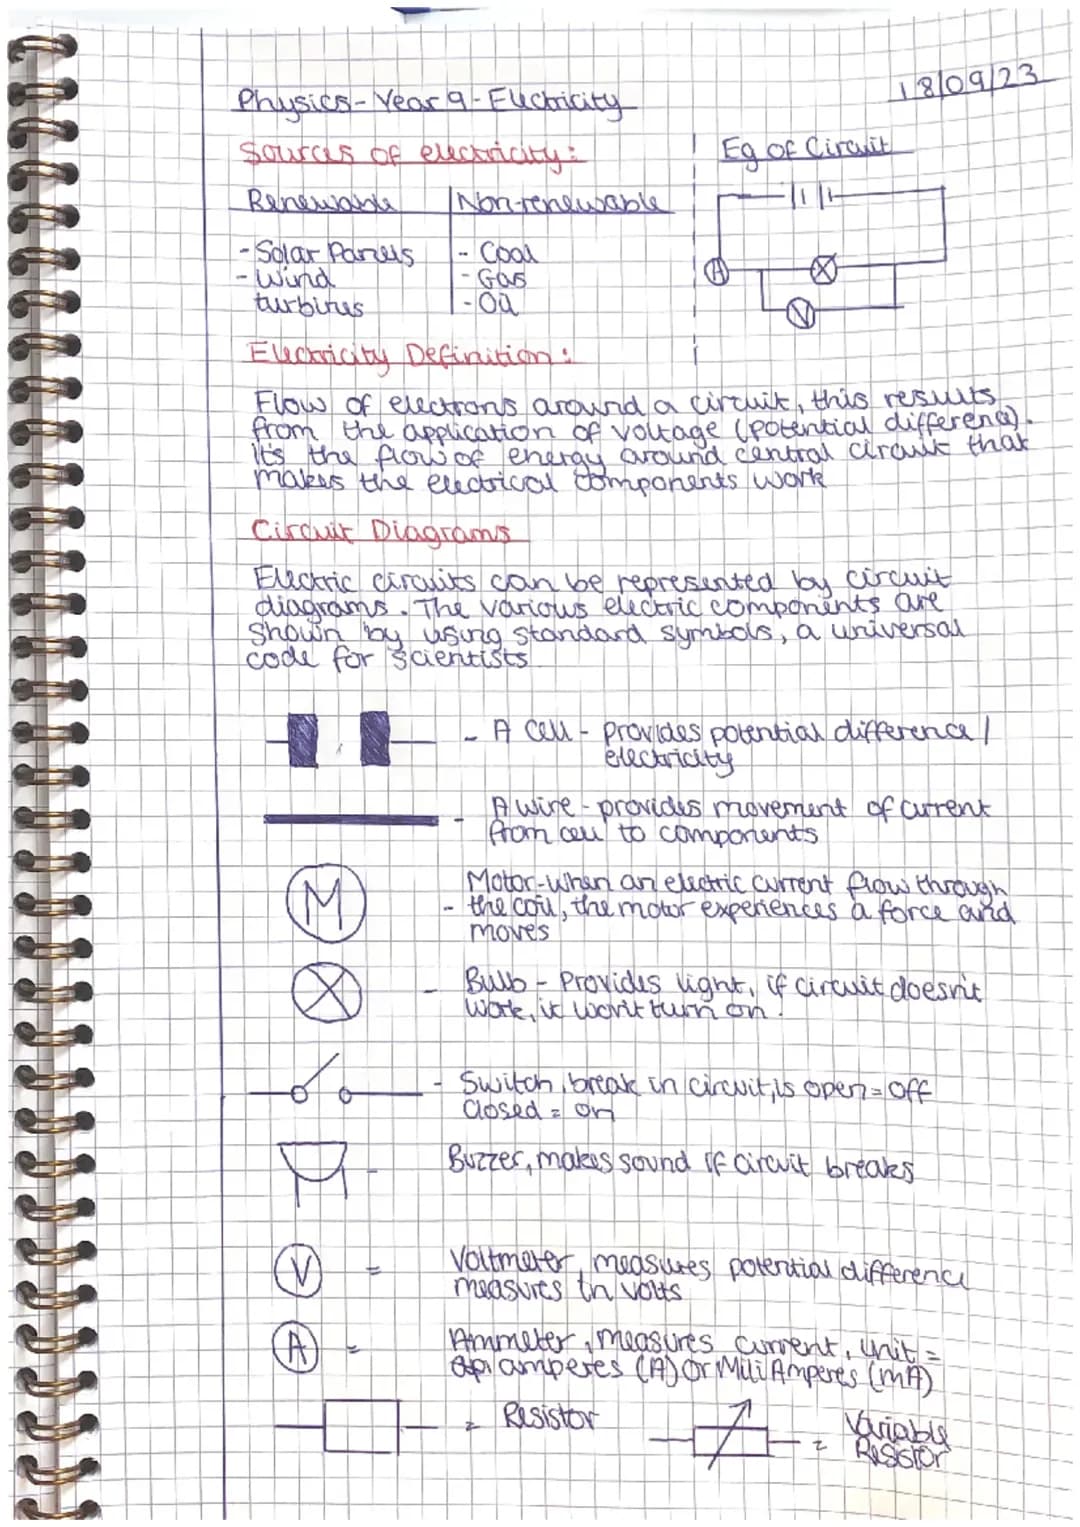 18/09/23
Physics - Year 9 - Electricity
Sources of electricity:
Renewable
Non-renewable
- Solar Panels
- Wind
turbines
- Coal
- Gas
- Oil
Eg of Circuit
A
V
Electricity Definition:
Flow of electrons around a circuit, this results
from the application of voltage (potential difference).
It's the flow of energy around central circuit that
makes the electrical components work
Circuit Diagrams
Electric circuits can be represented by circuit
diagrams. The various electric components are
shown by using standard symbols, a universal
code for scientists
- A cell - provides potential difference /
electricity
- A wire - provides movement of current
from cell to components
M
Motor - when an electric current flow through
- the coil, the motor experiences a force and
moves
- Bulb - Provides light, if circuit doesn't
work, it won't turn on.
- Switch, break in circuit, is open = off
closed = on
- Buzzer, makes sound if circuit breaks
V = Voltmeter, measures potential difference
measures in volts
A = Ammeter, measures current, unit =
amperes (A) or MiliAmperes (mA)
= Resistor
= Variable
Resistor